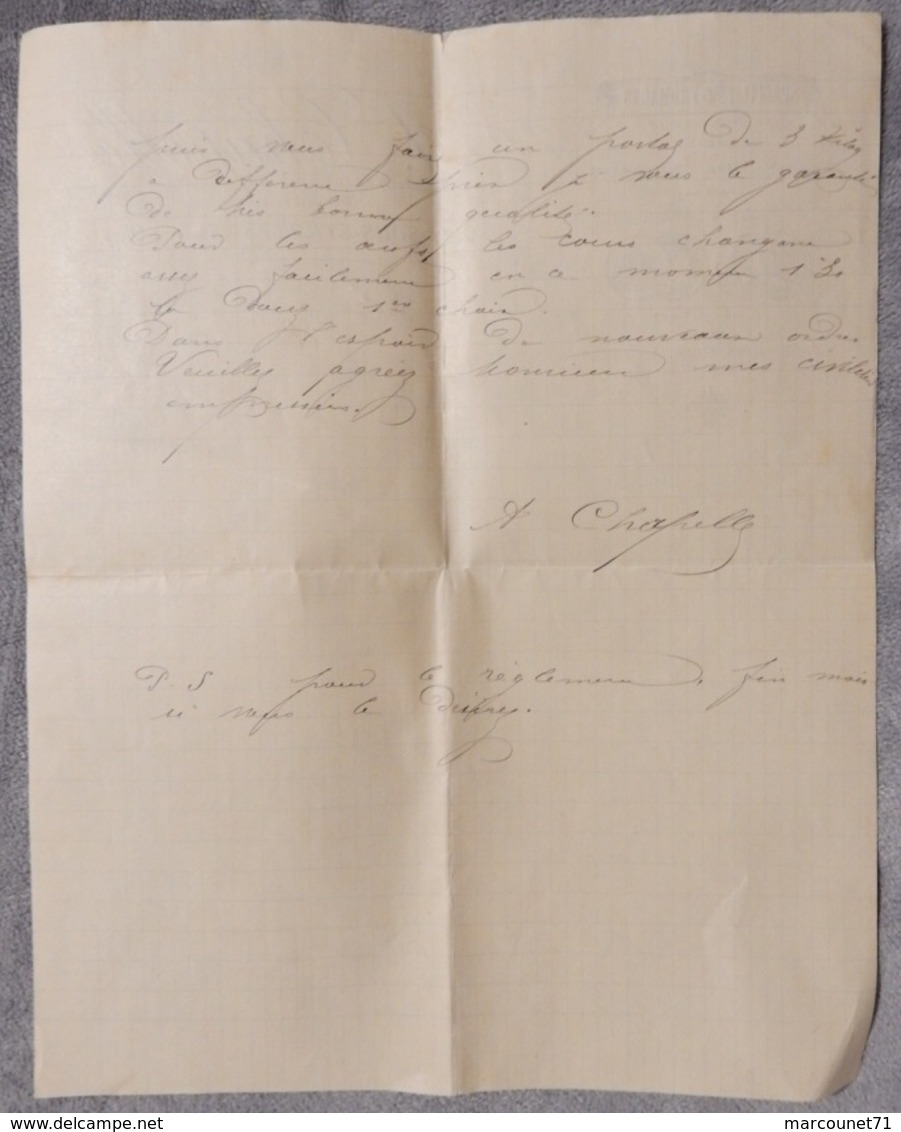 puis vous faire un postal de 3 kilog
a différents prix & vous le garantis
de très bonne qualité.
Pour les œufs les cours changent
assez facilement en ce moment 1 30
la douz 1er choix.
Dans l'espoir de nouveaux ordres
Veuillez agréez Monsieur mes civilités
empressées.
A Chapelle
P.S pour le règlement, fin mois
si vous le désirez.
marcounet71